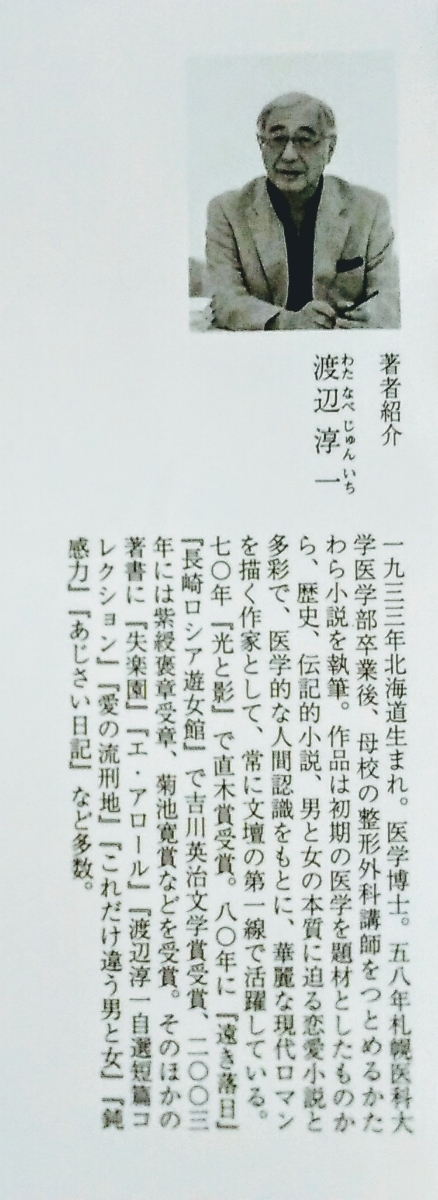 著者紹介
わたなべじゅんいち
渡辺淳一
一九三三年北海道生まれ。医学博士。五八年札幌医科大
学医学部卒業後、母校の整形外科講師をつとめるかた
わら小説を執筆。作品は初期の医学を題材としたものか
ら、歴史、伝記的小説、男と女の本質に迫る恋愛小説と
多彩で、医学的な人間認識をもとに、華麗な現代ロマン
を描く作家として、常に文壇の第一線で活躍している。
七〇年『光と影』で直木賞受賞。八〇年に『遠き落日』
『長崎ロシア遊女館』で吉川英治文学賞受賞、二〇〇三
年には紫綬褒章受章、菊池寛賞などを受賞。そのほかの
著書に『失楽園』『エ・アロール』『渡辺淳一自選短篇コ
レクション』『愛の流刑地』『これだけ違う男と女』『鈍
感力』『あじさい日記』など多数。